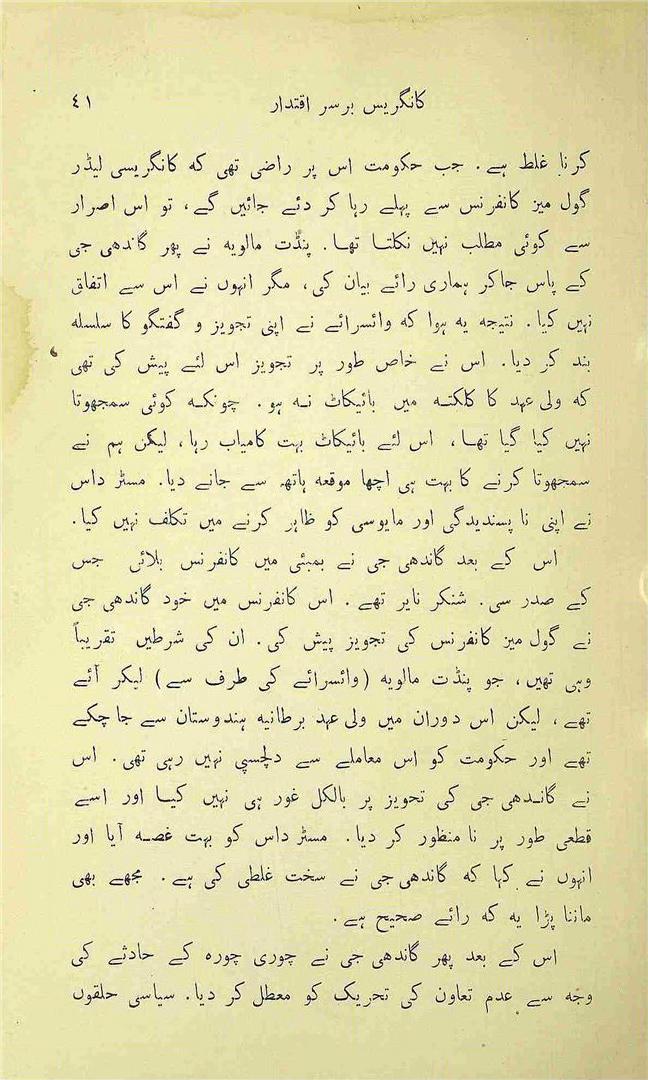 کانگریس برسر اقتدار ٤١
کرنا غلط ہے۔ جب حکومت اس پر راضی تھی کہ کانگریسی لیڈر
گول میز کانفرنس سے پہلے رہا کر دئے جائیں گے، تو اس اصرار
سے کوئی مطلب نہیں نکلتا تھا۔ پنڈت مالویہ نے پھر گاندھی جی
کے پاس جاکر ہماری رائے بیان کی، مگر انہوں نے اس سے اتفاق
نہیں کیا۔ نتیجہ یہ ہوا کہ وائسرائے نے اپنی تجویز و گفتگو کا سلسلہ
بند کر دیا۔ اس نے خاص طور پر تجویز اس لئے پیش کی تھی
کہ ولی عہد کا کلکتہ میں بائیکاٹ نہ ہو۔ چونکہ کوئی سمجھوتا
نہیں کیا گیا تھا، اس لئے بائیکاٹ بہت کامیاب رہا، لیکن ہم نے
سمجھوتا کرنے کا بہت ہی اچھا موقعہ ہاتھ سے جانے دیا۔ مسٹر داس
نے اپنی نا پسندیدگی اور مایوسی کو ظاہر کرنے میں تکلف نہیں کیا۔
اس کے بعد گاندھی جی نے بمبئی میں کانفرنس بلائی جس
کے صدر سی۔ شنکر نایر تھے۔ اس کانفرنس میں خود گاندھی جی
نے گول میز کانفرنس کی تجویز پیش کی۔ ان کی شرطیں تقریباً
وہی تھیں، جو پنڈت مالویہ (وائسرائے کی طرف سے) لیکر آئے
تھے، لیکن اس دوران میں ولی عہد برطانیہ ہندوستان سے جا چکے
تھے اور حکومت کو اس معاملے سے دلچسپی نہیں رہی تھی۔ اس
نے گاندھی جی کی تجویز پر بالکل غور ہی نہیں کیا اور اسے
قطعی طور پر نا منظور کر دیا۔ مسٹر داس کو بہت غصہ آیا اور
انہوں نے کہا کہ گاندھی جی نے سخت غلطی کی ہے۔ مجھے بھی
ماننا پڑا یہ کہ رائے صحیح ہے۔
اس کے بعد پھر گاندھی جی نے چوری چورہ کے حادثے کی
وجہ سے عدم تعاون کی تحریک کو معطل کر دیا۔ سیاسی حلقوں